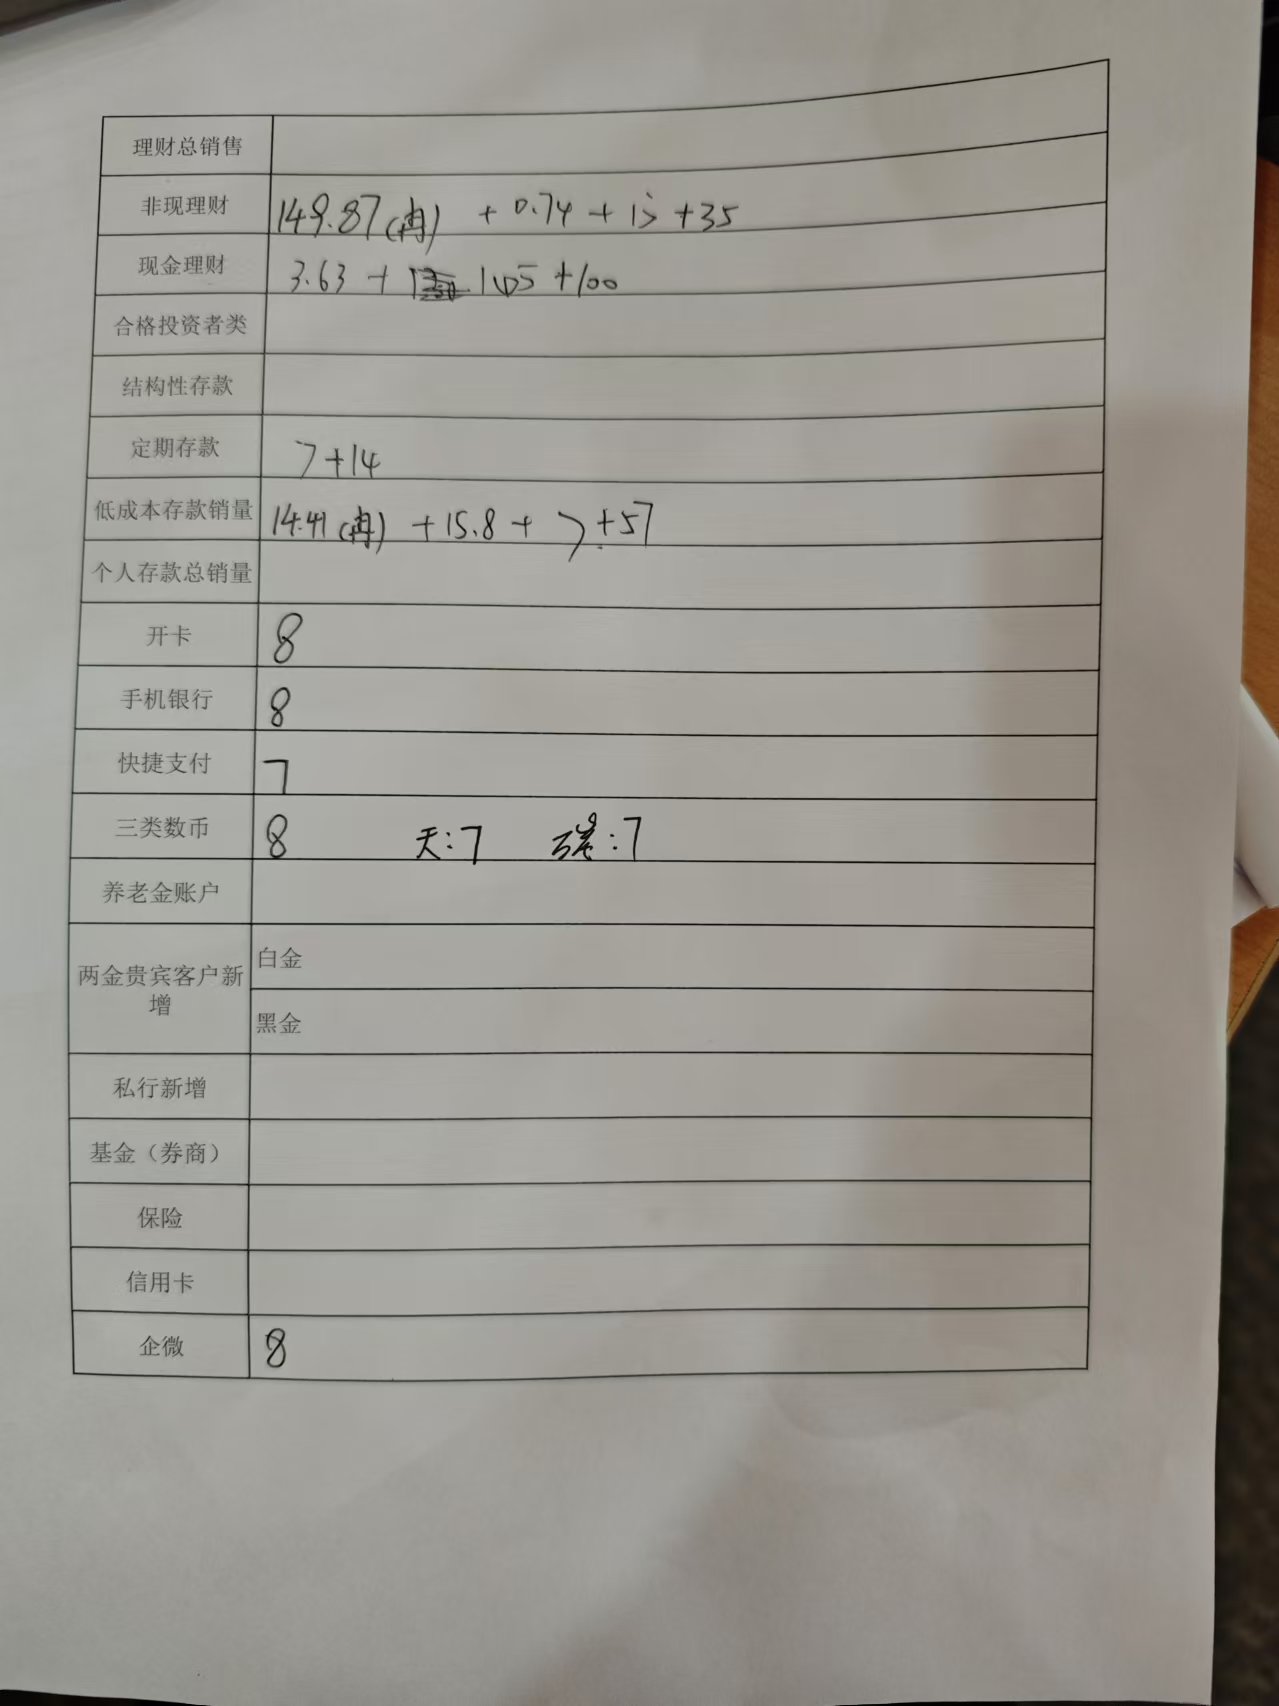 理财总销售
非现理财 149.87(冉) + 0.74 + 15 + 35
现金理财 3.63 + 145 + 100
合格投资者类
结构性存款
定期存款 7+14
低成本存款销量 14.41(冉) + 15.8 + 7 + 57
个人存款总销量
开卡 8
手机银行 8
快捷支付 7
三类数币 8 天:7 碳:7
养老金账户
两金贵宾客户新增
白金
黑金
私行新增
基金（券商）
保险
信用卡
企微 8